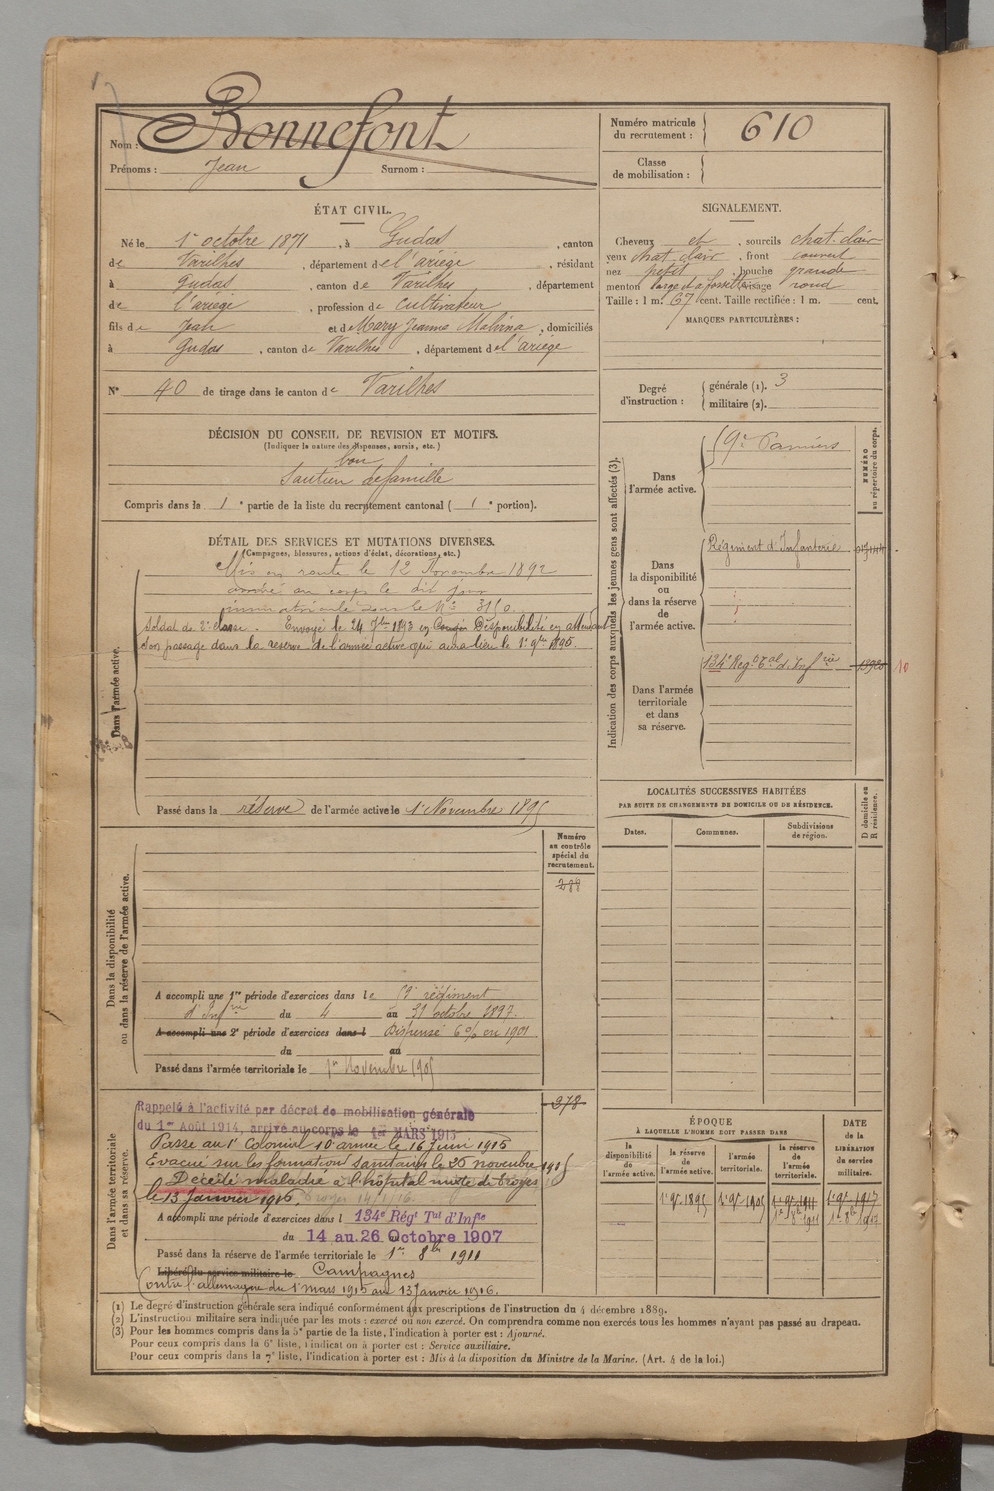 Nom : Bonnefont
Prénoms : Jean Surnom :
Numéro matricule
du recrutement : 610
Classe
de mobilisation :
ÉTAT CIVIL.
Né le 1er octobre 1871, à Gudas, canton
de Varilhes, département de l'ariège, résidant
à Gudas, canton de Varilhes, département
de l'ariège, profession de cultivateur
fils de Jean et de Mary Jeanne Malvina, domiciliés
à Gudas, canton de Varilhes, département de l'ariège
N° 40 de tirage dans le canton de Varilhes
SIGNALEMENT.
Cheveux et, sourcils chat. clair
yeux chat. clair, front couvert
nez petit, bouche grande
menton large et à fossette visage rond
Taille : 1 m. 67 cent. Taille rectifiée : 1 m. cent.
MARQUES PARTICULIÈRES :
Degré
d'instruction :
générale (1). 3
militaire (2).
DÉCISION DU CONSEIL DE REVISION ET MOTIFS.
(Indiquer la nature des dispenses, sursis, etc.)
bon
Soutien de famille
Compris dans la 1e partie de la liste du recrutement cantonal ( 1e portion).
DÉTAIL DES SERVICES ET MUTATIONS DIVERSES.
(Campagnes, blessures, actions d'éclat, décorations, etc.)
Dans l'armée active.
Mis en route le 12 Novembre 1892
arrivé au corps le dit jour
immatriculé sous le N° 3150.
Soldat de 2e classe. Envoyé le 24 7bre 1893 en Congé Disponibilité en attendant
son passage dans la réserve de l'armée active qui aura lieu le 1er 9bre 1895.
Passé dans la réserve de l'armée active le 1er Novembre 1895
Indication des corps auxquels les jeunes gens sont affectés (3).
NUMÉRO
au répertoire du corps.
Dans
l'armée active.
59e Pamiers
Dans
la disponibilité
ou
dans la réserve
de
l'armée active.
Régiment d'Infanterie
Dans l'armée
territoriale
et dans
sa réserve.
134e Reg. tal d'Infrie
10
LOCALITÉS SUCCESSIVES HABITÉES
PAR SUITE DE CHANGEMENTS DE DOMICILE OU DE RÉSIDENCE.
Dates. Communes. Subdivisions
de région.
D domicile ou
R résidence.
Dans la disponibilité
ou dans la réserve de l'armée active.
Numéro
au contrôle
spécial du
recrutement.
288
A accompli une 1re période d'exercices dans le 59e régiment
d'Infrie du 4 au 31 octobre 1897.
A accompli une 2e période d'exercices dans l Dispensé 6% en 1901
du au
Passé dans l'armée territoriale le 1er Novembre 1905
Dans l'armée territoriale
et dans sa réserve.
278
Rappelé à l'activité par décret de mobilisation générale
du 1er Août 1914, arrivé au corps le 1er MARS 1915
Passé au 1er Colonial 10e armée le 16 Juin 1915
Evacué sur les formations sanitaires le 25 novembre 1915
Décédé maladie à l'hôpital mixte de Troyes
le 13 Janvier 1916. Troyes 14/1/16.
A accompli une période d'exercices dans l 134e Régt Tal d'Infie
du 14 au 26 Octobre 1907
Passé dans la réserve de l'armée territoriale le 1er 8bre 1911
Libéré du service militaire le Campagnes
Contre l'allemagne du 1er mars 1915 au 13 Janvier 1916.
ÉPOQUE
À LAQUELLE L'HOMME DOIT PASSER DANS
la
disponibilité
de
l'armée active.
la réserve
de
l'armée active.
l'armée
territoriale.
la réserve
de
l'armée
territoriale.
DATE
de la
LIBÉRATION
du service
militaire.
1er 9e 1895 1er 9e 1905 1er 9e 1911 1er 9e 1917
1er 8bre 1911 1er 8bre 1917
(1) Le degré d'instruction générale sera indiqué conformément aux prescriptions de l'instruction du 4 décembre 1889.
(2) L'instruction militaire sera indiquée par les mots : exercé ou non exercé. On comprendra comme non exercés tous les hommes n'ayant pas passé au drapeau.
(3) Pour les hommes compris dans la 5e partie de la liste, l'indication à porter est : Ajourné.
Pour ceux compris dans la 6e liste, l'indication à porter est : Service auxiliaire.
Pour ceux compris dans la 7e liste, l'indication à porter est : Mis à la disposition du Ministre de la Marine. (Art. 4 de la loi.)